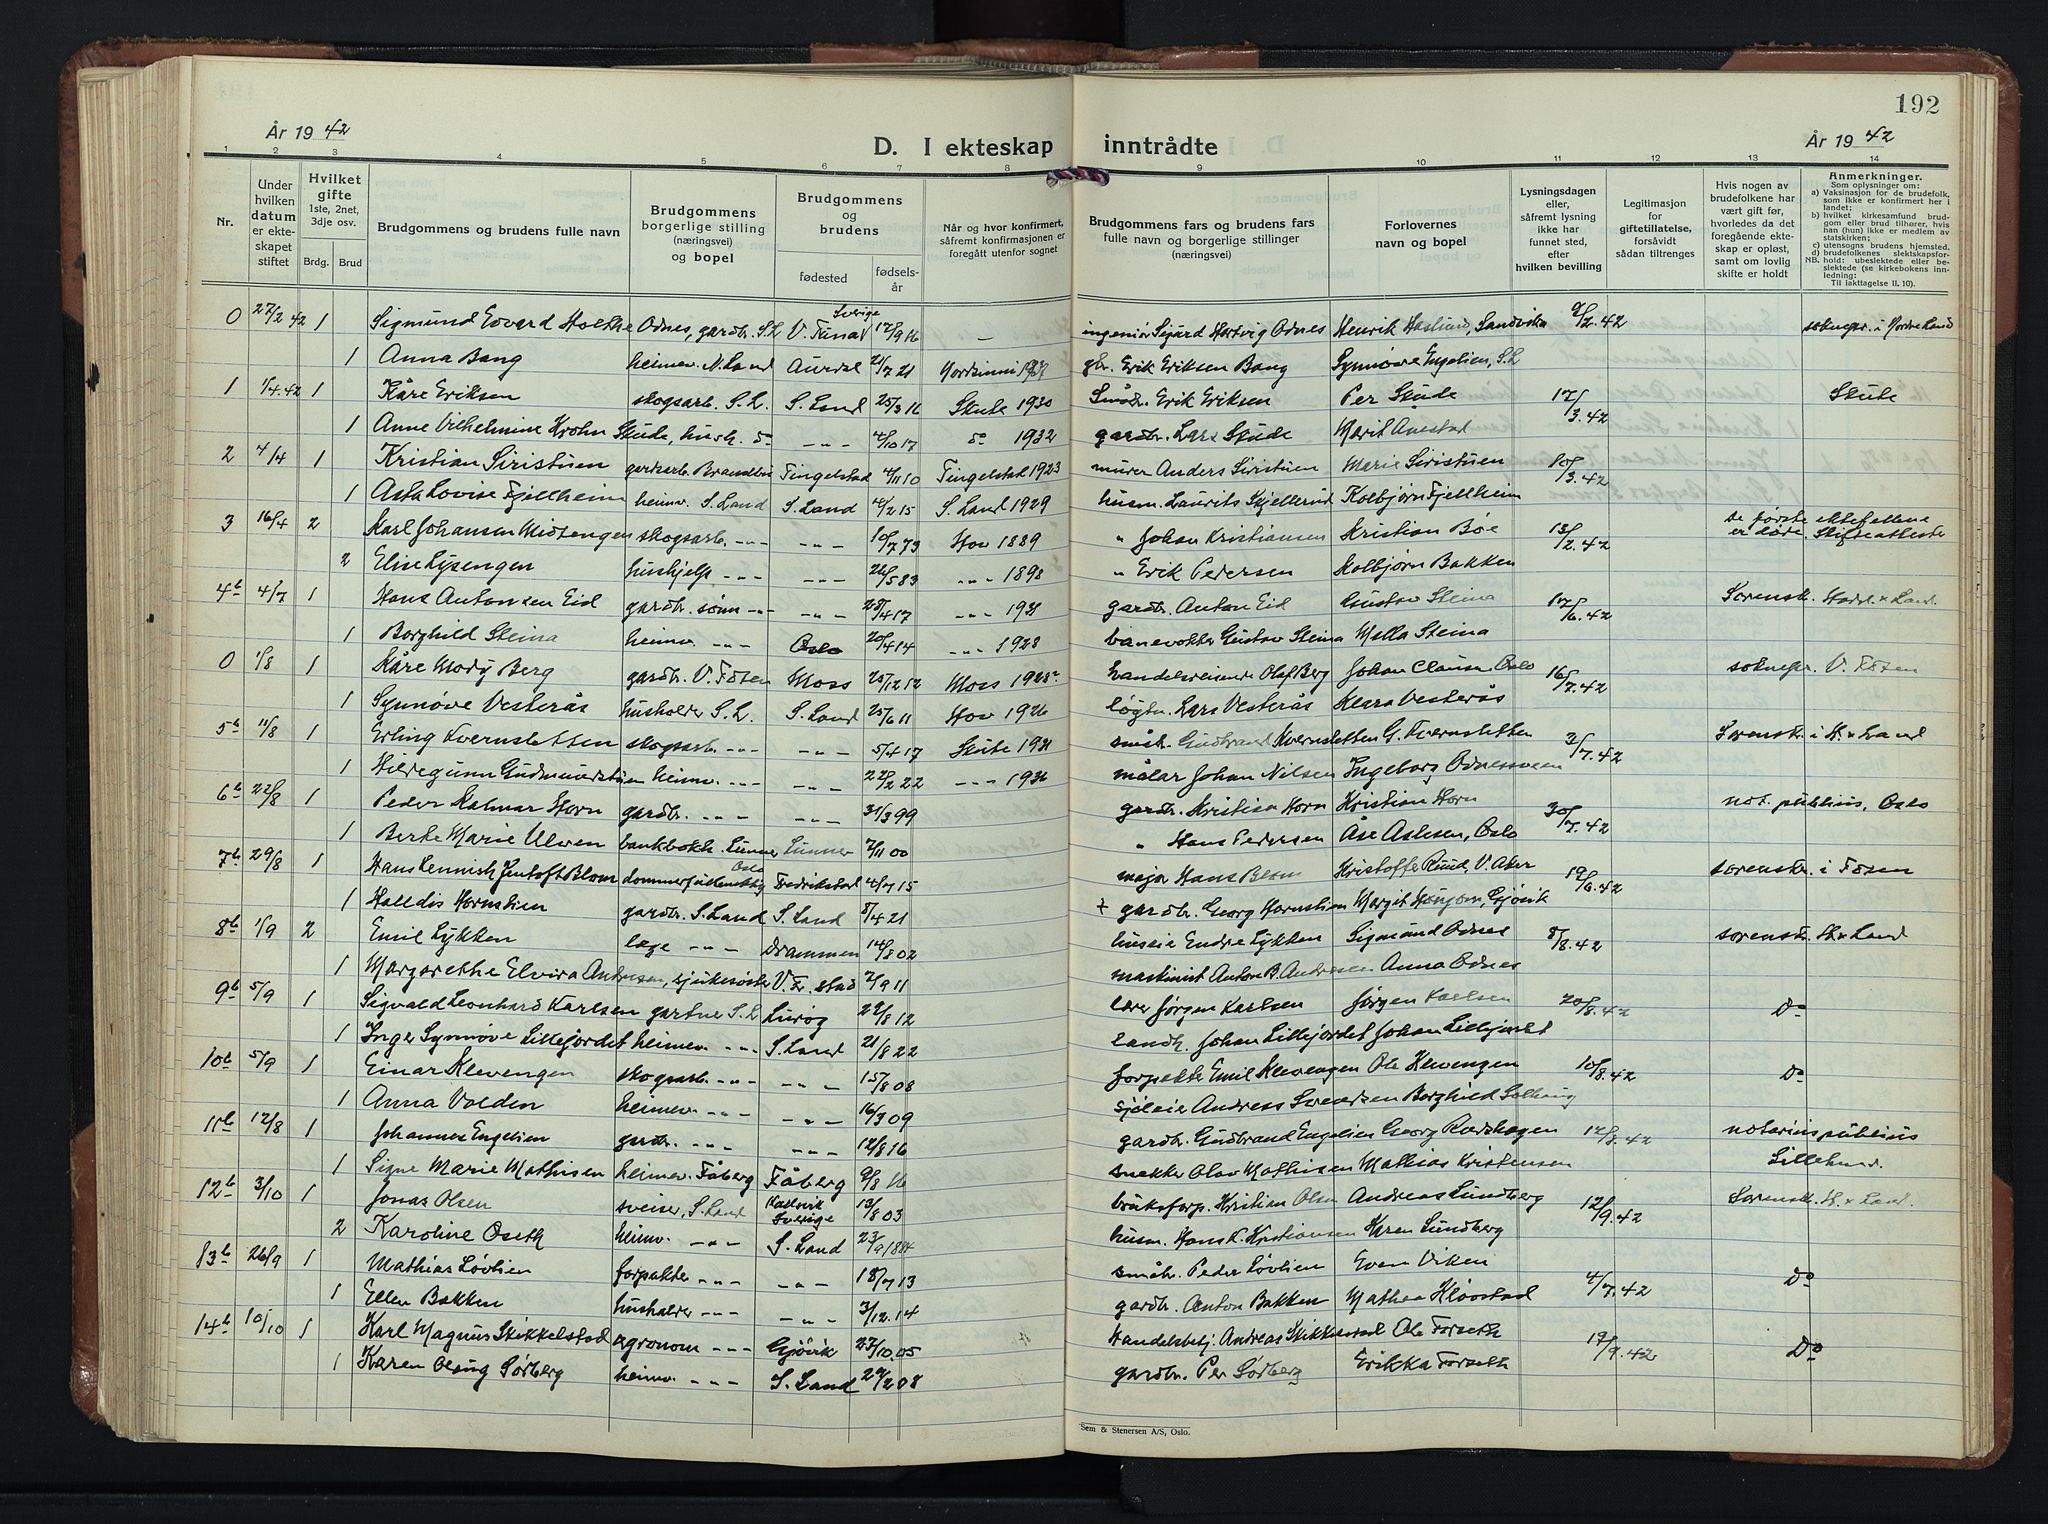 192
År 1942
D. I ekteskap inntrådte
År 1942
1 2 3 4 5 6 7 8 9 10 11 12 13 14
Nr.
Under hvilken datum er ekteskapet stiftet
Hvilket gifte 1ste, 2net, 3dje osv.
Brdg. Brud
Brudgommens og brudens fulle navn
Brudgommens borgerlige stilling (næringsvei) og bopel
Brudgommens og brudens
fødested
fødsels-år
Når og hvor konfirmert, såfremt konfirmasjonen er foregått utenfor sognet
Brudgommens fars og brudens fars fulle navn og borgerlige stillinger (næringsvei)
Forlovernes navn og bopel
Lysningsdagen eller, såfremt lysning ikke har funnet sted, efter hvilken bevilling
Legitimasjon for giftetillatelse, forsåvidt sådan tiltrenges
Hvis nogen av brudefolkene har vært gift før, hvorledes da det foregående ekteskap er opløst, samt om lovlig skifte er holdt
Anmerkninger.
Som oplysninger om:
a) Vaksinasjon for de brudefolk, som ikke er konfirmert her i landet;
b) hvilket kirkesamfund brudgom eller brud tilhører, hvis han (hun) ikke er medlem av statskirken;
c) utensogns brudens hjemsted.
d) brudefolkenes slektskapsforhold: ubeslektede eller beslektede (se kirkebokens innledning:
NB.
Til iakttagelse II, 10).
0 27/2 42 1 Sigmund Edvard Holthe Odnes, gardbr. S.L. V. Tuna Sverige 12/9 16 - ingeniør Sigurd Hartvig Odnes Henrik Haslund, Sandvika 9/2.42 sokнepr. i Nordre Land
1 Anna Bang heimev. N. Land Aurdal 21/7 21 Nordsinni 1937 gbr. Erik Eriksen Bang Synnøve Engelien, S.L
1 1/4.42 1 Kåre Eriksen skogsarb. S.L. S. Land 25/3 16 Skute 1930 Småbr. Erik Eriksen Per Skude 17/3.42 Skute
1 Anne Vilhelmine Krohn Skude, hush. do -"- 4/10 17 do 1932 gardbr. Lars Skude Marit Avestad
2 4/4 1 Kristian Siristuen gardsarb. Brandbu Tingelstad 4/11 10 Tingelstad 1923 murer Anders Siristuen Marie Siristuen 20/3.42
1 Asta Lovise Fjellheim heimev. S. Land S. Land 4/2 15 S. Land 1929 husm. Laurits Skjellerud Kolbjørn Fjellheim
3 16/4 2 Karl Johansen Midtengen skogsarb. -"- -"- 10/7 73 Hov 1889 " Johan Kristiansen Kristian Bøe 13/2.42 De første ektefellene er døde. Skifteatteste
2 Elise Lysengen hushjelp -"- -"- 22/5 83 -"- 1898 " Erik Pedersen Kolbjørn Bakken
4b 4/7 1 Hans Antonsen Eid gardbr. sønn -"- -"- 28/4 17 -"- 1931 gardbr. Anton Eid Gustav Steina 17/6.42 Sorensk. Hadel. & Land.
1 Borghild Steina heimev. -"- Oslo 20/4 14 -"- 1928 banevokter Gustav Steina Malla Steina
0 1/8 1 Kåre Mody Berg gardbr. V. Toten Moss 25/12 12 Moss 1928 handelsreisende Olaf Berg Johan Clausen Oslo 16/7.42 soknepr. V. Toten
1 Synnøve Vesterås husholder S.L. S. Land 25/6 11 Hov 1926 løytn. Lars Vesterås Klara Vesterås
5b 11/8 1 Erling Kvernsletten skogsarb. -"- -"- 5/4 17 Skute 1931 småbr. Gudbrand Kvernsletten G. Kvernsletten 3/7.42 Sorensk. i H. & Land
1 Hildegunn Gudmundstuen heimev. -"- -"- 22/2 22 -"- 1936 målar Johan Nilsen Ingeborg Odnessveen
6b 22/8 1 Peder Kalmar Horn gardbr. -"- -"- 31/3 99 gardbr. Kristian Horn Kristian Horn 30/7.42 not. publius, Oslo
1 Berte Marie Ulven bankbokh. Lunner Lunner 7/11 00 " Hans Pedersen Åse Aslesen, Oslo
7b 29/8 1 Hans Lennich Jentoft Blom dommerfullmektig Oslo Fredrikstad 4/7 15 major Hans Blom Kristoffer Ruud, V. Aker 19/6.42 sorenskr. i Toten
1 Halldis Hornslien gardbr. S. Land S. Land 8/4 21 † gardbr. Georg Hornslien Margit Hougom, Gjøvik
8b 1/9 2 Emil Lykken læge -"- Drammen 14/8 02 huseie Endre Lykken Sigmund Odnes 8/8.42 sorenskr. H. & Land
1 Margarethe Elvira Andresen, sjukesøster V. Fr. stad 7/9 11 maskinist Anton B. Andresen Anna Odnes
9b 5/9 1 Sigvald Leonhard Karlsen gartner S.L Lurøy 22/8 12 lærer Jørgen Karlsen Jørgen Karlsen 20/8.42 Do
1 Inger Synnøve Lillejordet heimev. -"- S. Land 21/8 22 landh. Johan Lillejordet Johan Lillejordet
10b 5/9 1 Einar Klevengen skogsarb. -"- -"- 15/8 08 forpakter Emil Klevengen Ole Klevengen 10/8.42 Do
1 Anna Volden heimev. -"- -"- 16/3 09 sjøleie Andreas Sveersen Borghild Solhaug
11b 12/8 1 Johannes Engelien gardbr. -"- -"- 12/8 16 gardbr. Gudbrand Engelien Georg Rødshagen 12/8.42 notarius publius Lilleham.
1 Signe Marie Mathisen heimev. Fåberg Fåberg 9/8 16 snekker Olav Mathisen Mathias Kristensen
12b 3/10 1 Jonas Olsen sveiser, S. Land Kallvik Sverige 13/8 03 bruksforp. Kristian Olsen Andreas Lundberg 12/9.42 Sorensk. H. & Land.
2 Karoline Oseth heimev. -"- S. Land 23/9 1884 husm. Hans K. Kristiansen Karen Lundberg
13b 26/9 1 Mathias Løvlien forpakter -"- -"- 18/7 13 småbr. Peder Løvlien Even Viken 4/7.42 Do
1 Ellen Bakken husholder -"- -"- 3/12.14 gardbr. Anton Bakken Mathea Kløvstad
14b 10/10 1 Karl Magnus Skikkelstad agronom -"- Gjøvik 27/10.05 Handelsbetj. Andreas Skikkelstad Ole Forseth 17/9.42 Do
1 Karen Oling Sørberg heimev. -"- S. Land 29/2 08 gardbr. Per Sørberg Erikka Forseth
Sem & Stenersen A/S, Oslo.